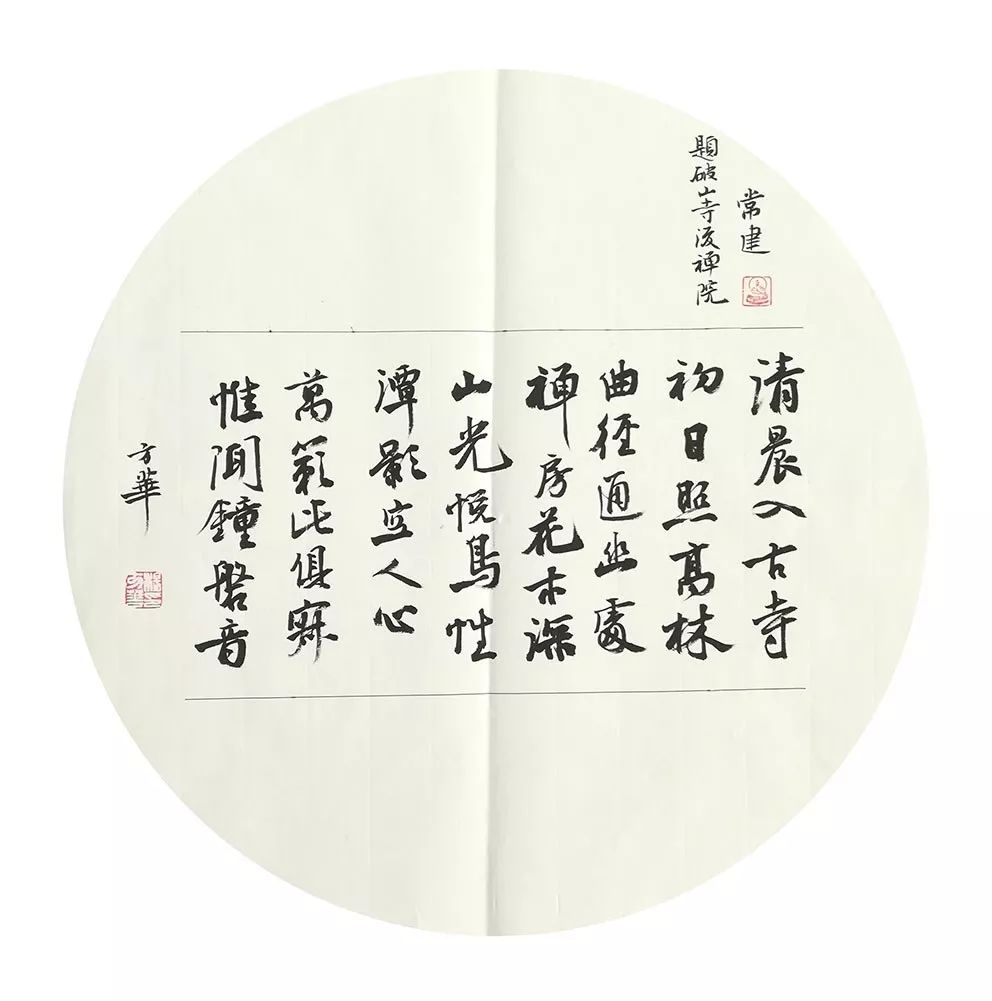 常建
題破山寺後禪院
清晨入古寺
初日照髙林
曲徑通幽處
禪房花木深
山光悅鳥性
潭影空人心
萬籟此俱寂
惟聞鐘磬音
方華